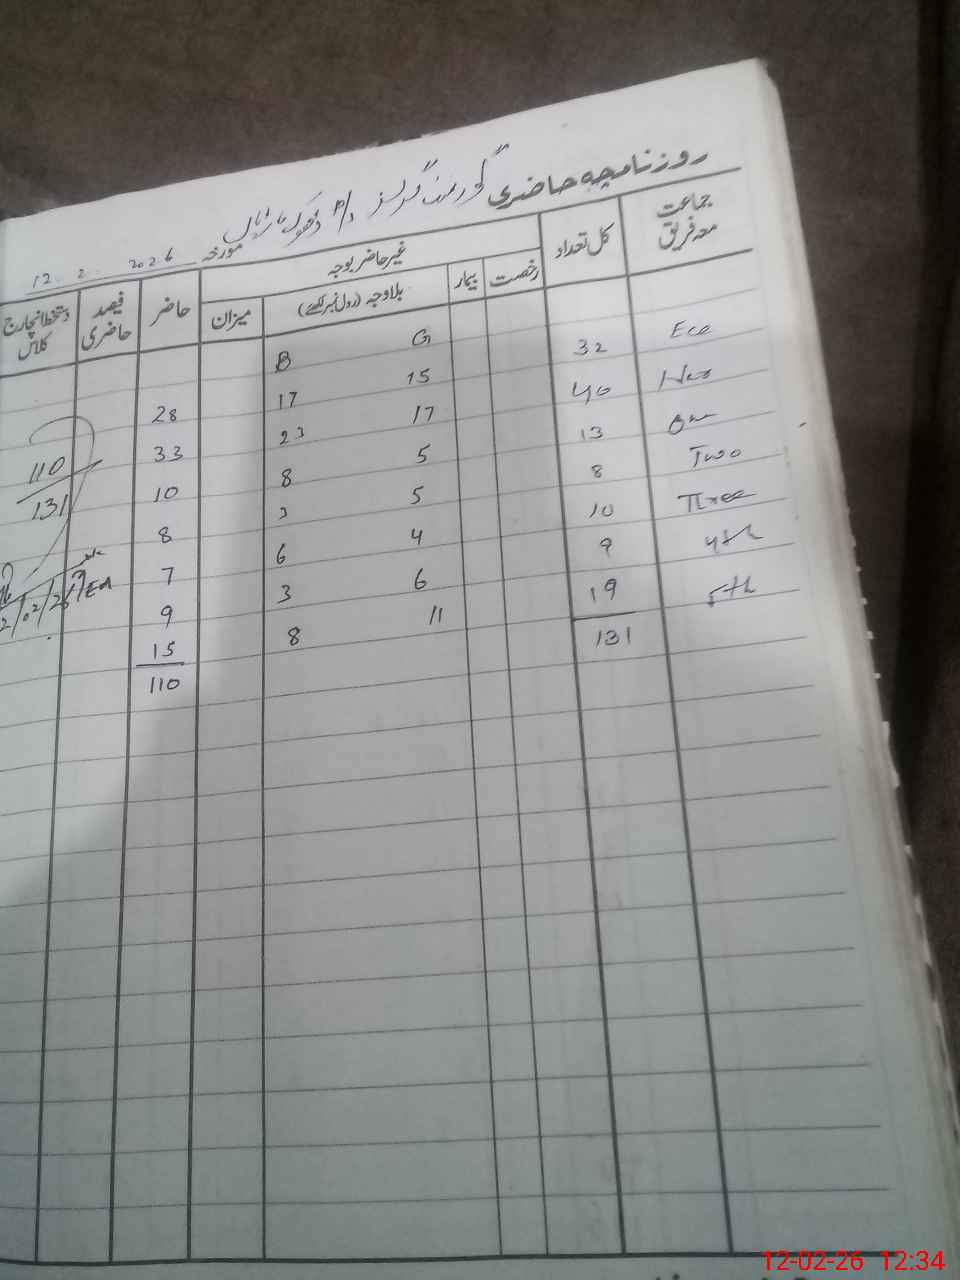 روزنامچہ حاضری گورنمنٹ گرلز
مورخہ 12.2.2026
جماعت معہ فریق کل تعداد غیر حاضر بوجہ حاضر فیصد حاضری دستخط انچارج کلاس
رخصت بیمار بلاوجہ (رول نمبر لکھئے) میزان
G B
Ece 32 15 17 28
40 17 23 33
13 5 8 10
Two 8 5 3 8
Three 10 4 6 7
4th 9 6 3 9
5th 19 11 8 15
131 110
110
131
12-02-26 12:34